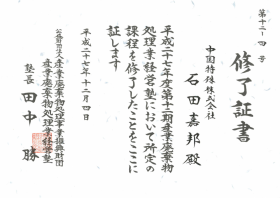 第十二-四号
修了証書
中国特殊株式会社
石田嘉邦殿
平成二十七年度第十二期産業廃棄物
処理業経営塾において所定の
課程を修了したことをここに
証します
平成二十七年十二月四日
公益財団法人産業廃棄物処理事業振興財団
産業廃棄物処理業経営塾
塾長 田中勝